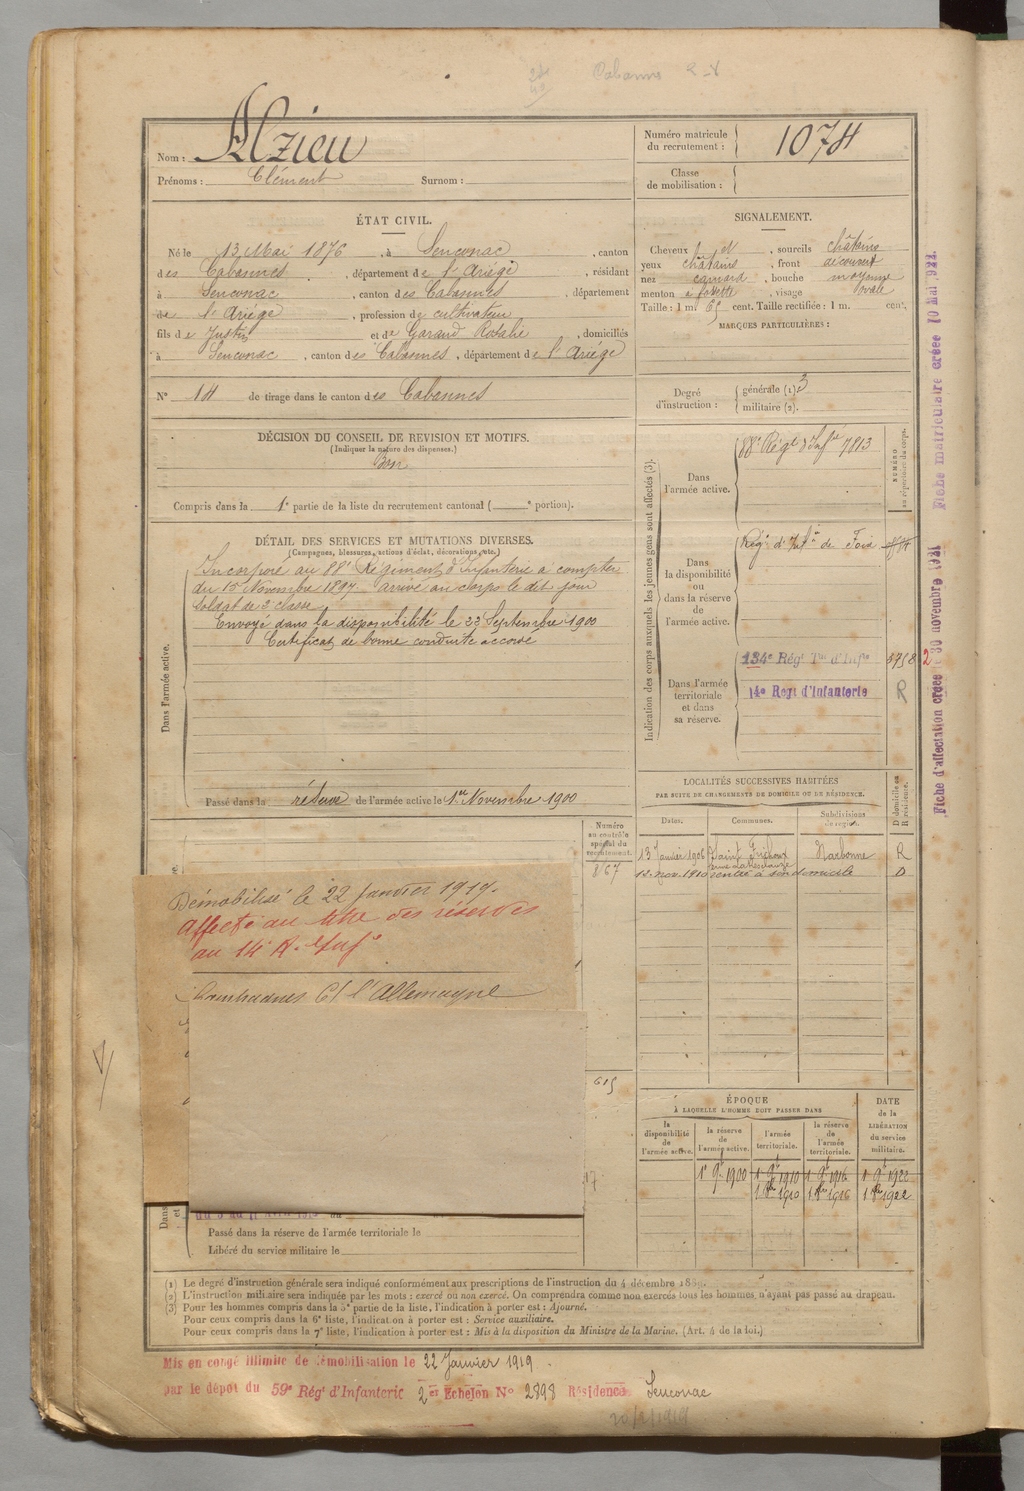 Cabannes
Nom : Alzieu
Prénoms : Clément Surnom :
Numéro matricule du recrutement : 1074
Classe de mobilisation :
ÉTAT CIVIL.
Né le 13 Mai 1876, à Senconac, canton
des Cabannes, département de l'Ariège, résidant
à Senconac, canton des Cabannes, département
de l'Ariège, profession de cultivateur
fils de Justin et de Garaud Rosalie, domiciliés
à Senconac, canton des Cabannes, département de l'Ariège
N° 14 de tirage dans le canton des Cabannes
SIGNALEMENT.
Cheveux et, sourcils châtains
yeux châtains, front découvert
nez camard, bouche moyenne
menton à fossette, visage ovale
Taille : 1 m. 65 cent. Taille rectifiée : 1 m. cent.
MARQUES PARTICULIÈRES :
Degré d'instruction : générale (1) 3
militaire (2).
DÉCISION DU CONSEIL DE REVISION ET MOTIFS.
(Indiquer la nature des dispenses.)
Bon
Compris dans la 1e partie de la liste du recrutement cantonal ( e portion).
DÉTAIL DES SERVICES ET MUTATIONS DIVERSES.
(Campagnes, blessures, actions d'éclat, décorations, etc.)
Dans l'armée active.
Incorporé au 88e Régiment d'Infanterie à compter
du 15 Novembre 1897 arrivé au corps le dit jour
Soldat de 2e classe
Envoyé dans la disponibilité le 23 Septembre 1900
Certificat de bonne conduite accordé
Passé dans la réserve de l'armée active le 1er Novembre 1900
Indication des corps auxquels les jeunes gens sont affectés (3).
NUMÉRO au répertoire du corps.
Dans l'armée active.
88e Régt d'Infie 7813
Dans la disponibilité ou dans la réserve de l'armée active.
Régt d'Infie de Foix
Dans l'armée territoriale et dans sa réserve.
134e Régt Tal d'Infie 3758 2
14e Regt d'Infanterie R
Fiche d'affectation créée le 30 novembre 1921 Fiche matriculaire créée 10 Mai 1922
LOCALITÉS SUCCESSIVES HABITÉES
PAR SUITE DE CHANGEMENTS DE DOMICILE OU DE RÉSIDENCE.
Dates. Communes. Subdivisions de région. D domicile ou R résidence.
13 Janvier 1906 Saint Frichoux Narbonne R
12 nov. 1910 rentré à son domicile D
Numéro au contrôle spécial du recrutement.
867
Démobilisé le 22 Janvier 1919.
Affecté au titre des réserves
au 14e R. d'Infie
Campagnes Ct l'Allemagne
615
17
ÉPOQUE
À LAQUELLE L'HOMME DOIT PASSER DANS
la disponibilité de l'armée active. la réserve de l'armée active. l'armée territoriale. la réserve de l'armée territoriale. DATE de la LIBÉRATION du service militaire.
1er 9bre 1900 1 9bre 1910 1 9bre 1916 1 9bre 1922
1 8bre 1910 1 8bre 1916 1 8bre 1922
Passé dans la réserve de l'armée territoriale le
Libéré du service militaire le
(1) Le degré d'instruction générale sera indiqué conformément aux prescriptions de l'instruction du 4 décembre
(2) L'instruction militaire sera indiquée par les mots : exercé ou non exercé. On comprendra comme non exercés tous les hommes n'ayant pas passé au drapeau.
(3) Pour les hommes compris dans la 5e partie de la liste, l'indication à porter est : Ajourné.
Pour ceux compris dans la 6e liste, l'indication à porter est : Service auxiliaire.
Pour ceux compris dans la 7e liste, l'indication à porter est : Mis à la disposition du Ministre de la Marine. (Art. 4 de la loi.)
Mis en congé illimité de démobilisation le 22 Janvier 1919.
par le dépot du 59e Régt d'Infanterie 2e Echelon N° 2898 Résidence Senconac